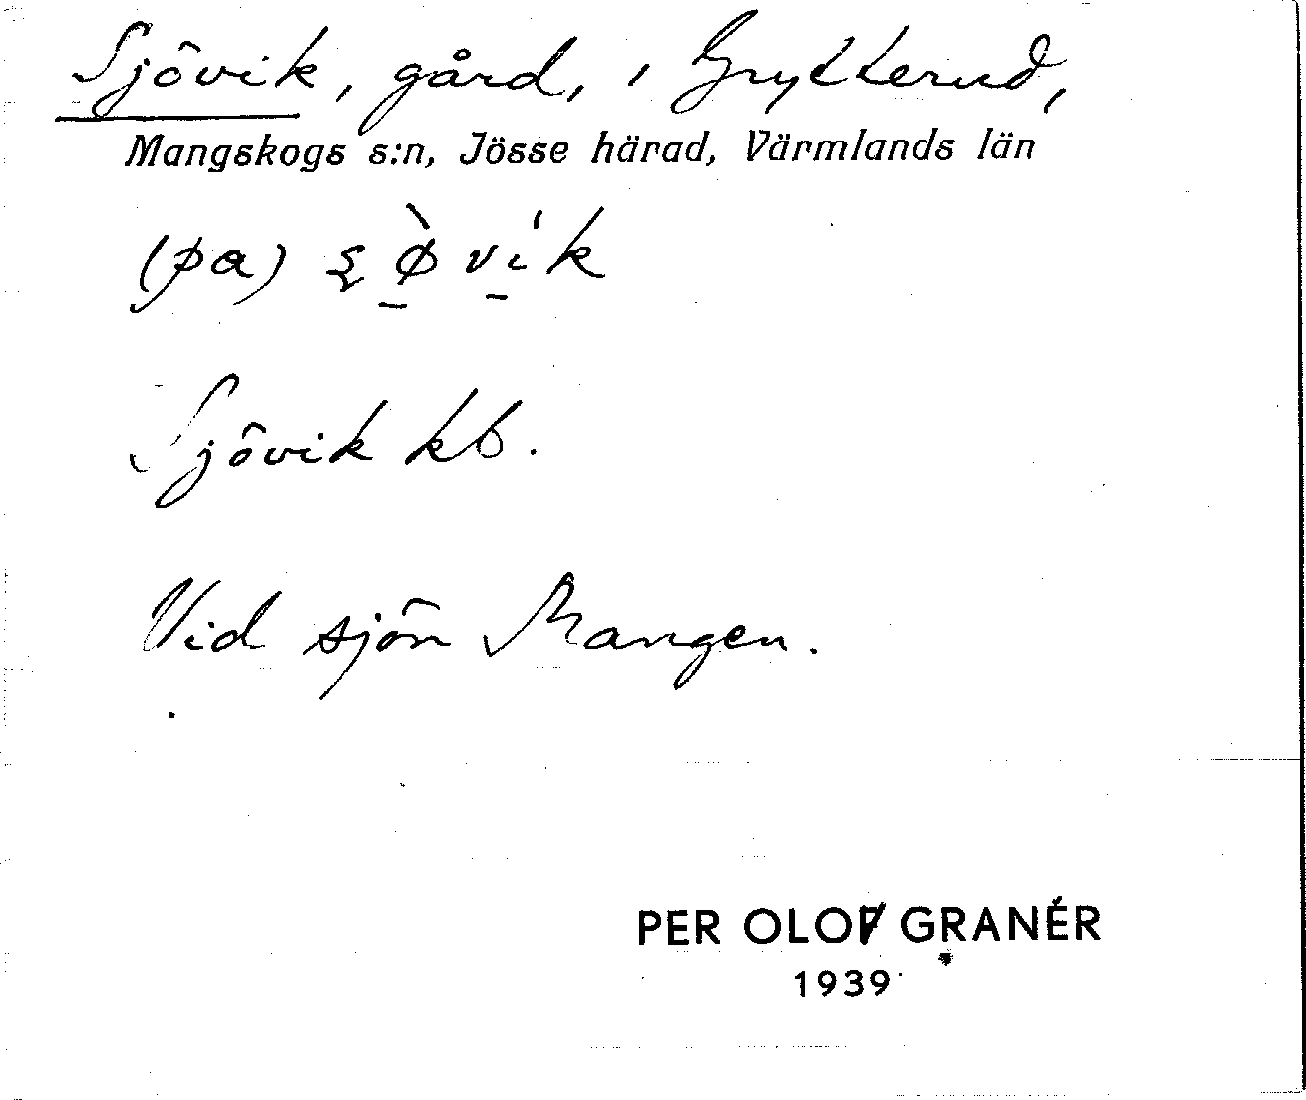 Sjövik, gård, i Grytterud,
Mangskogs s:n, Jösse härad, Värmlands län
(pa)
Sjövik kb.
Vid sjön Mangen.
PER OLOF GRANÉR
1939